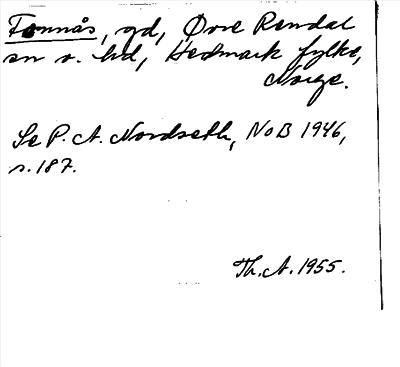 Fonnås, gd, Øvre Rendal
sn o. hd, Hedmark fylke,
Norge.
Se P. A. Nordseth, NoB 1946,
s. 187.
Th. A. 1955.